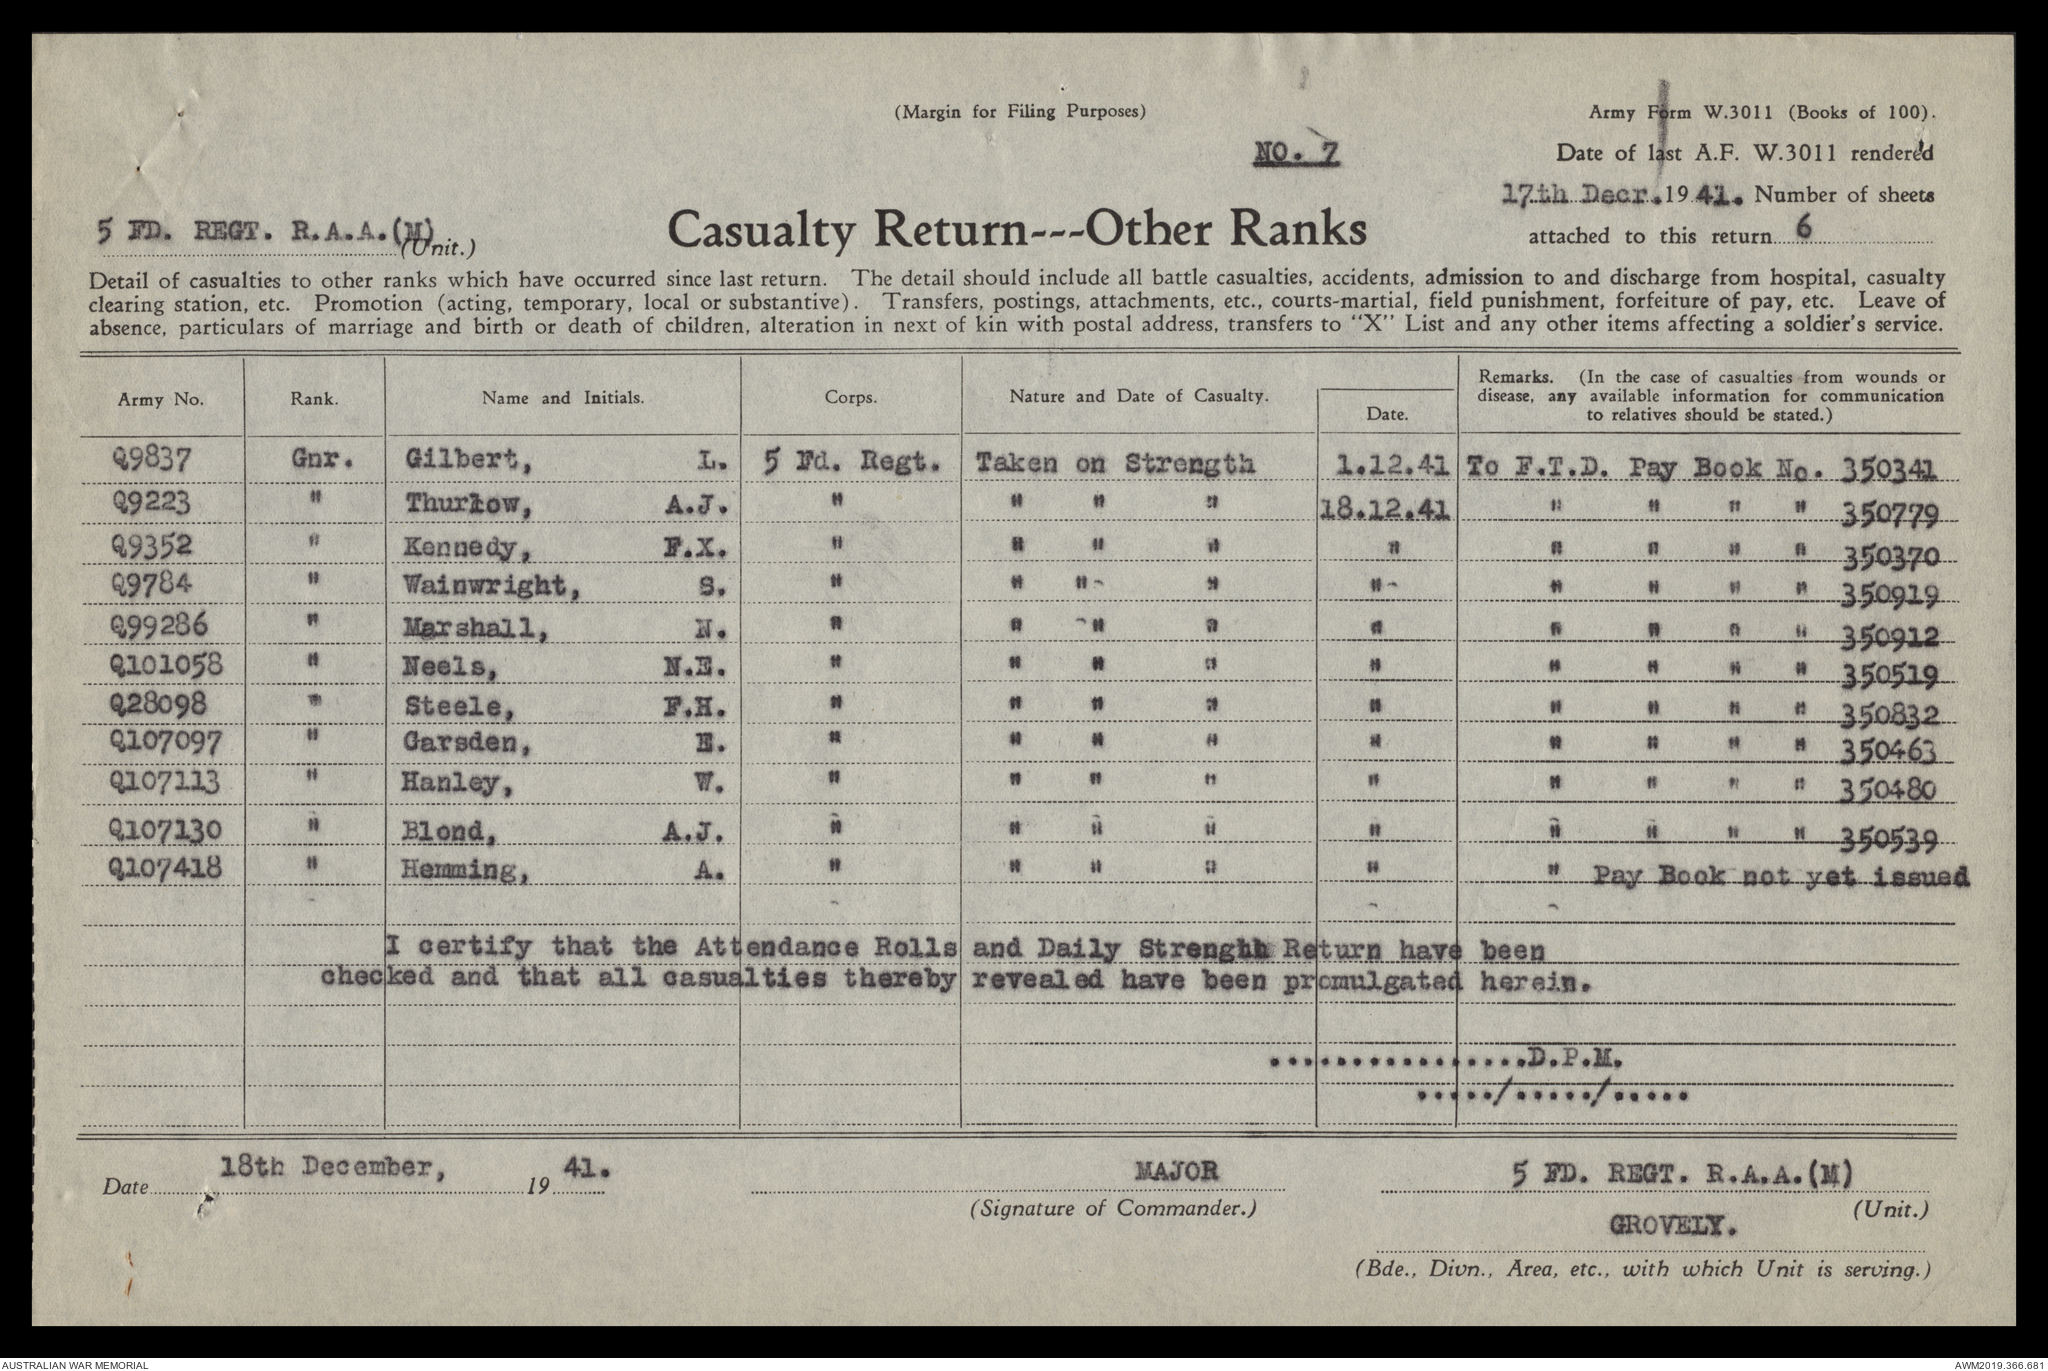 (Margin for Filing Purposes)
Army Form W.3011 (Books of 100).
NO. 7
Date of last A.F. W.3011 rendered
17th Decr. 1941. Number of sheets
attached to this return 6
5 FD. REGT. R.A.A.(M)
(Unit.)
Casualty Return---Other Ranks
Detail of casualties to other ranks which have occurred since last return. The detail should include all battle casualties, accidents, admission to and discharge from hospital, casualty
clearing station, etc. Promotion (acting, temporary, local or substantive). Transfers, postings, attachments, etc., courts-martial, field punishment, forfeiture of pay, etc. Leave of
absence, particulars of marriage and birth or death of children, alteration in next of kin with postal address, transfers to "X" List and any other items affecting a soldier's service.
Army No. Rank. Name and Initials. Corps. Nature and Date of Casualty. Date. Remarks. (In the case of casualties from wounds or
disease, any available information for communication
to relatives should be stated.)
Q9837 Gnr. Gilbert, L. 5 Fd. Regt. Taken on Strength 1.12.41 To F.T.D. Pay Book No. 350341
Q9223 " Thurlow, A.J. " " " " 18.12.41 " " " " 350779
Q9352 " Kennedy, F.X. " " " " " " " " " 350370
Q9784 " Wainwright, S. " " " " " " " " " 350919
Q99286 " Marshall, N. " " " " " " " " " 350912
Q101058 " Neels, N.E. " " " " " " " " " 350519
Q28098 " Steele, F.H. " " " " " " " " " 350832
Q107097 " Garsden, E. " " " " " " " " " 350463
Q107113 " Hanley, W. " " " " " " " " " 350480
Q107130 " Blond, A.J. " " " " " " " " " 350539
Q107418 " Hemming, A. " " " " " " Pay Book not yet issued
I certify that the Attendance Rolls and Daily Strength Return have been
checked and that all casualties thereby revealed have been promulgated herein.
................D.P.M.
...../...../.....
Date 18th December, 1941.
MAJOR
(Signature of Commander.)
5 FD. REGT. R.A.A.(M)
(Unit.)
GROVELY.
(Bde., Divn., Area, etc., with which Unit is serving.)
AUSTRALIAN WAR MEMORIAL
AWM2019.366.681